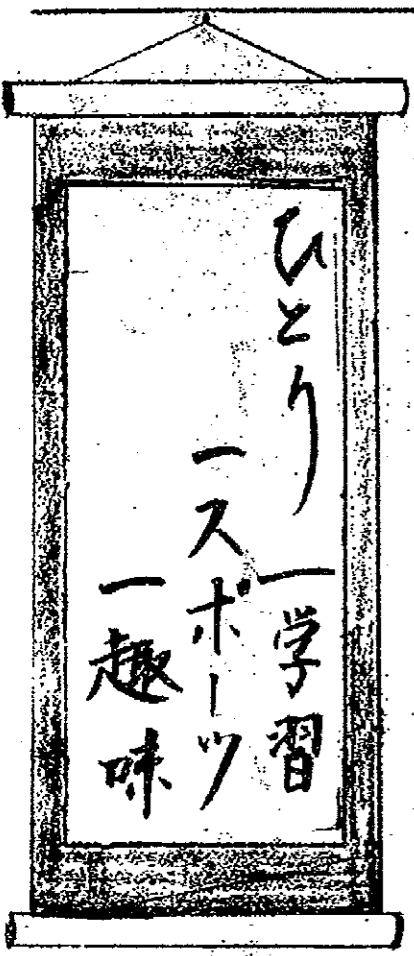 ひとり一学習
一スポーツ
一趣味